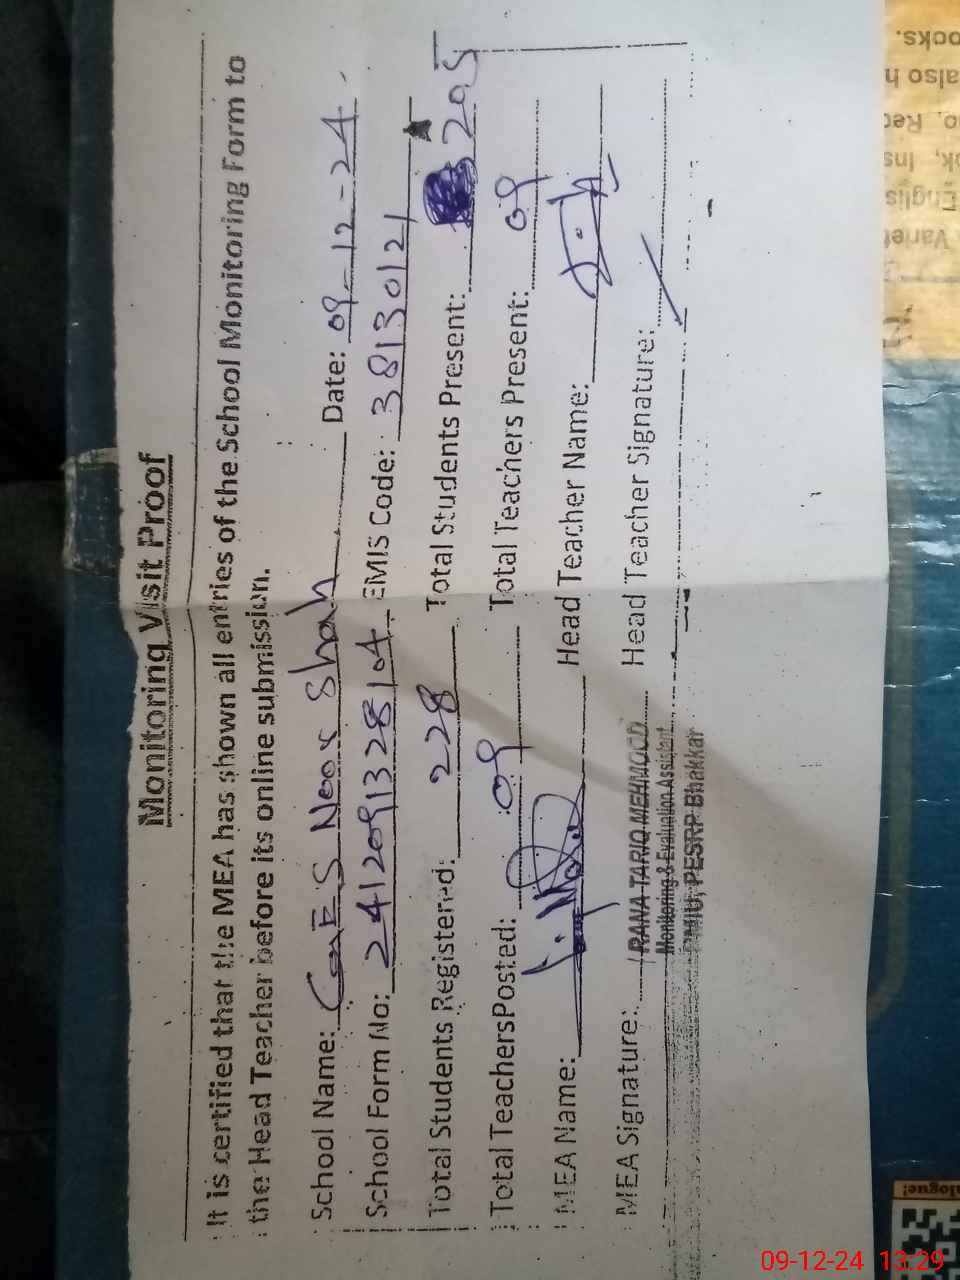 Monitoring Visit Proof
It is certified that the MEA has shown all entries of the School Monitoring Form to
the Head Teacher before its online submission.
School Name: GES Noor Shah Date: 09-12-24
School Form No: 2412091328104 EMIS Code: 3813012
Total Students Registered: 228 Total Students Present: 205
Total TeachersPosted: 09 Total Teachers Present: 09
MEA Name: Head Teacher Name:
MEA Signature: Head Teacher Signature:
RANA TARIQ MEHMOOD
Monitoring & Evaluation Assistant
PMIU, PESRP Bhakkar
ocks.
also h
o, Rec
ok, Ins
Englis
Variet
alogue!
09-12-24 13:29